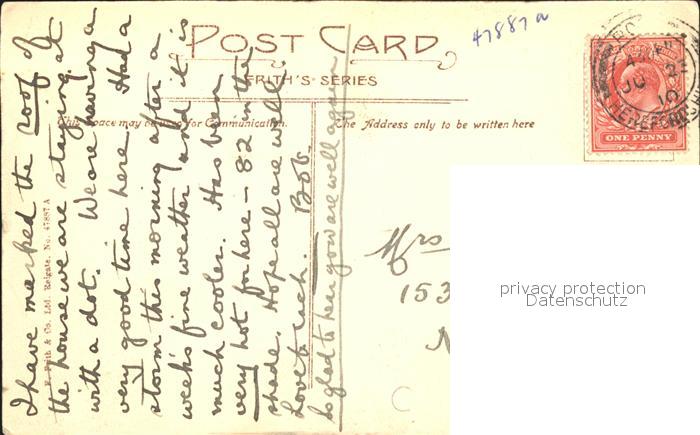 47887a
POST CARD
FRITH'S SERIES
This space may be used for Communication.
The Address only to be written here
I have marked the roof of
the house we are staying at
with a dot. We are having a
very good time here. Had a
storm this morning after a
week's fine weather and it is
much cooler. Has been
very hot for here - 82 in the
shade. Hope all are well.
Love to each. Bob.
So glad to hear you are well again
F. Frith & Co. Ltd. Reigate. No. 47887A
ONE PENNY
HEREFORDS
JU
10
Mrs
153
N
privacy protection
Datenschutz
C